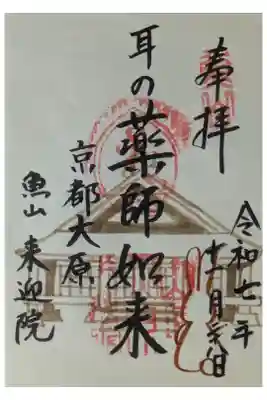 奉拝
令和七年
十一月 日
耳の薬師如来
京都大原
魚山 来迎院